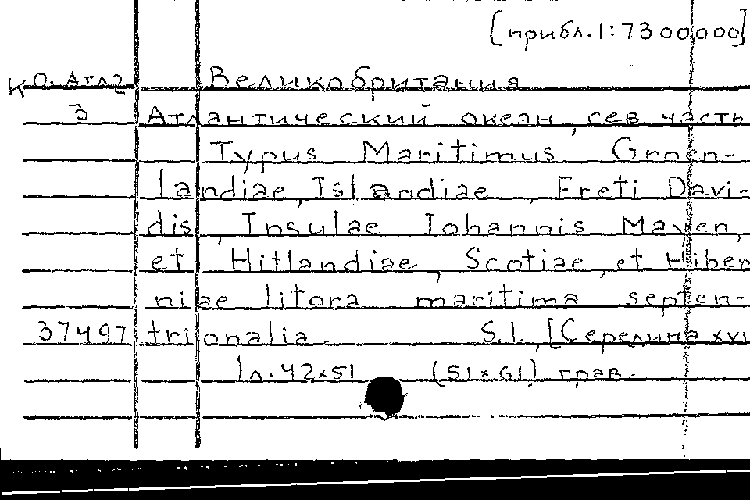 [прибл. 1:7300000]
КО. Атл2 Великобритания
3 Атлантический океан, сев часть
Typus Maritimus Groen-
landiae, Islandiae, Freti Davi-
dis, Insulae Iohannis Mayen,
et Hitlandiae, Scotiae, et Hiber
niae litora maritima septen-
37497 trionalia S.l., [Середина XVI
1л. 42×51 (51×61) грав.